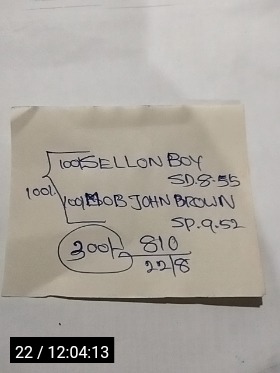 100/- SELLON BOY
SD.8.55
100/-
100/- BOB JOHN BROWN
SP.9.52
300/- 810
22/8
22 / 12:04:13